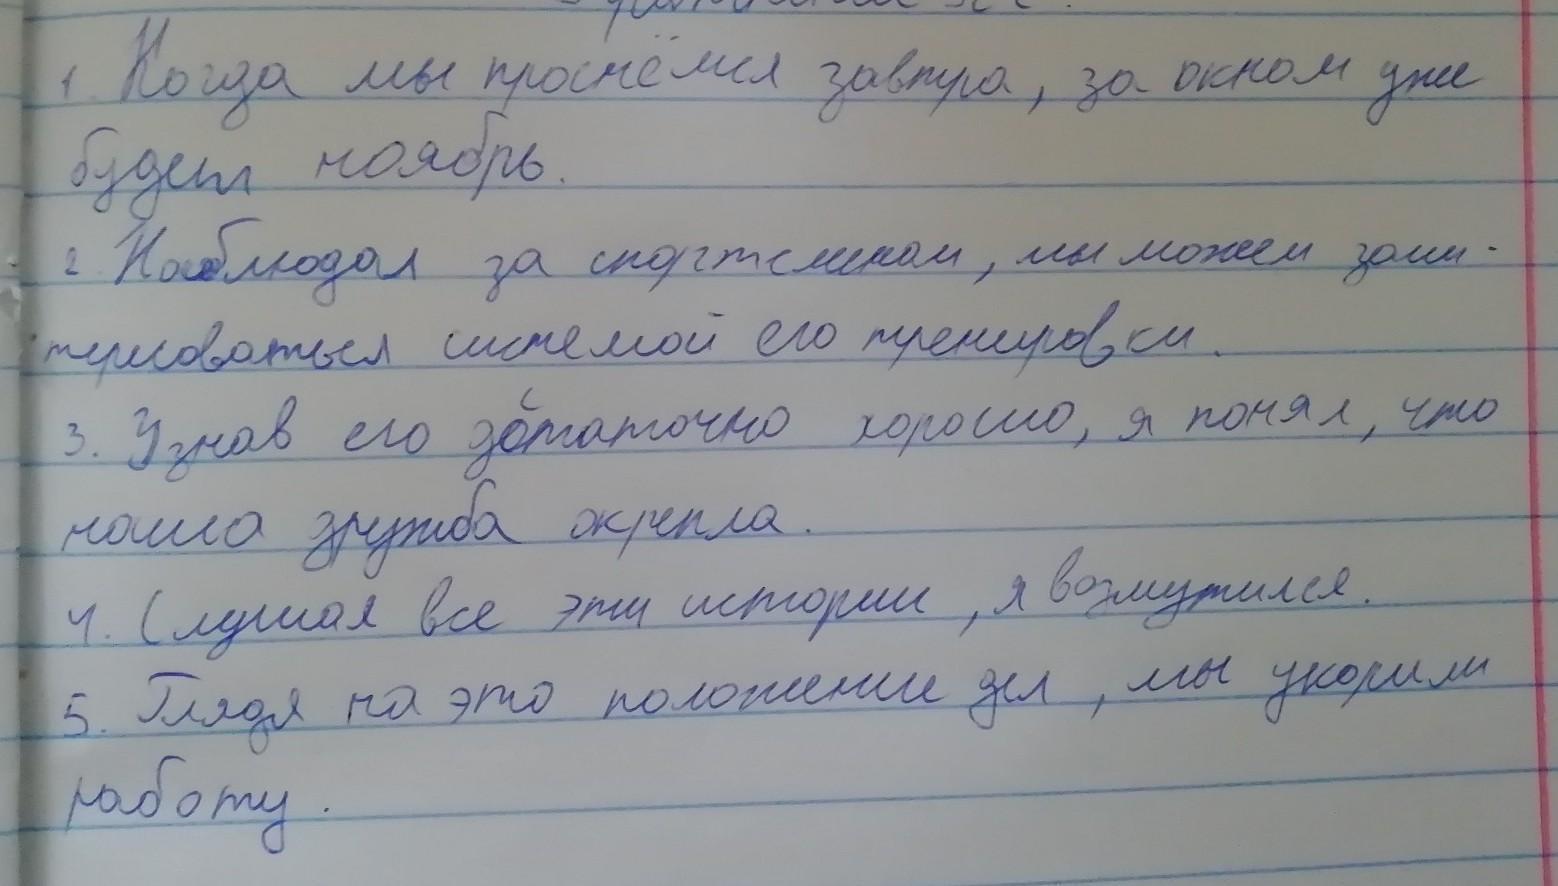 1. Когда мы проснёмся завтра, за окном уже
будет ноябрь.
2. Наблюдая за спортсменом, мы можем заин-
тересоваться системой его тренировки.
3. Узнав его достаточно хорошо, я понял, что
наша дружба окрепла.
4. Слушая все эти истории, я возмутился.
5. Глядя на это положение дел, мы укорили
работу.